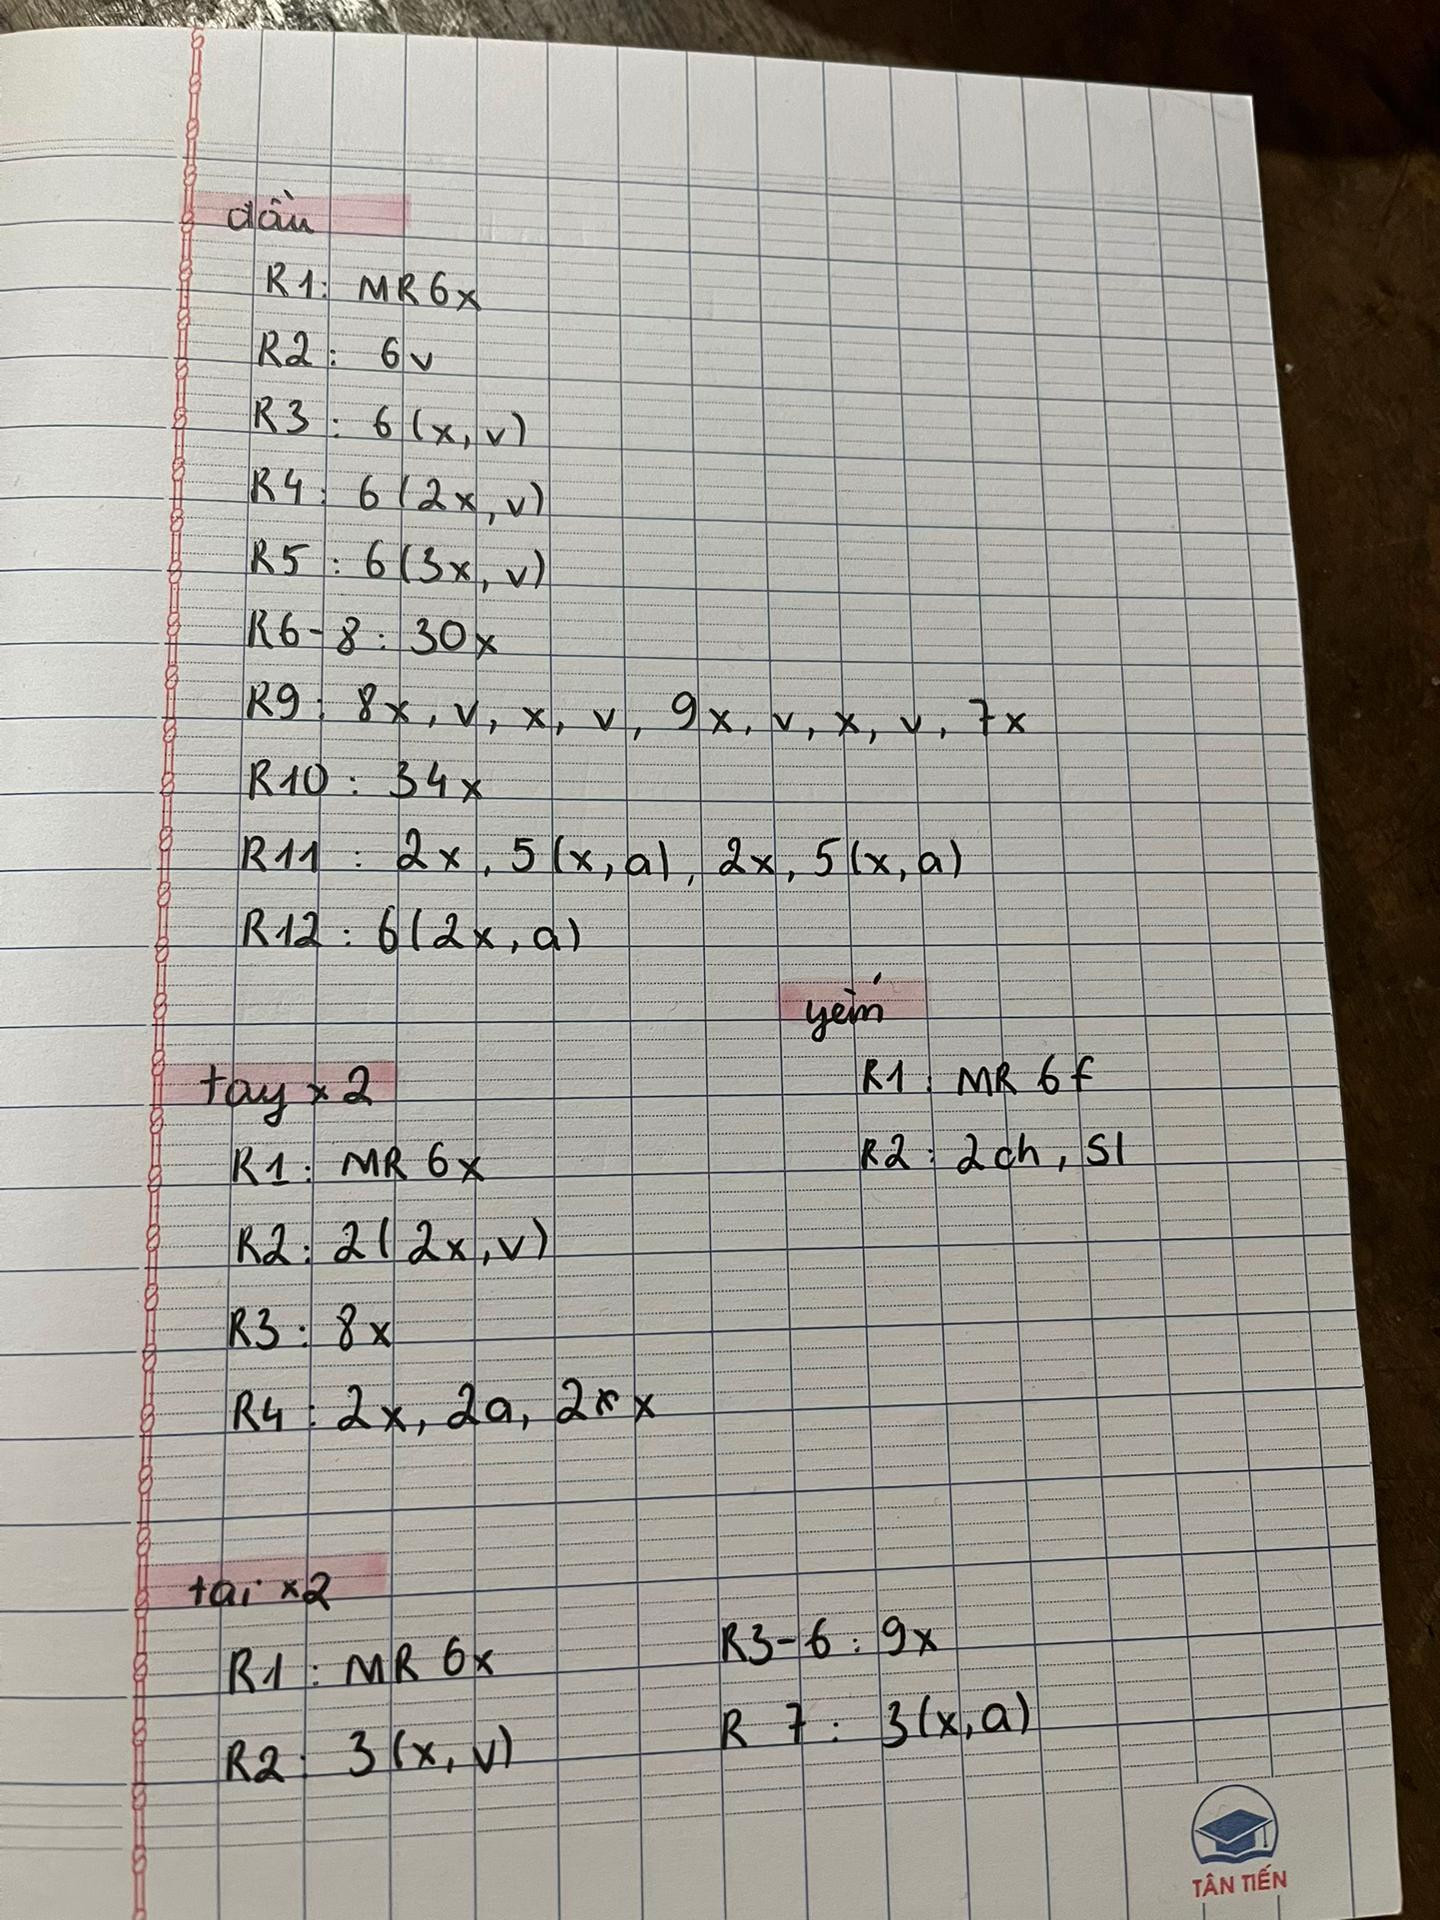 đầu
R1: MR 6x
R2: 6v
R3: 6(x, v)
R4: 6(2x, v)
R5: 6(3x, v)
R6-8: 30x
R9: 8x, v, x, v, 9x, v, x, v, 7x
R10: 34x
R11: 2x, 5(x, a), 2x, 5(x, a)
R12: 6(2x, a)
tay x2
R1: MR 6x
R2: 2(2x, v)
R3: 8x
R4: 2x, 2a, 2x x
yếm
R1: MR 6f
R2: 2ch, Sl
tai x2
R1: MR 6x
R2: 3(x, v)
R3-6: 9x
R7: 3(x, a)
TÂN TIẾN